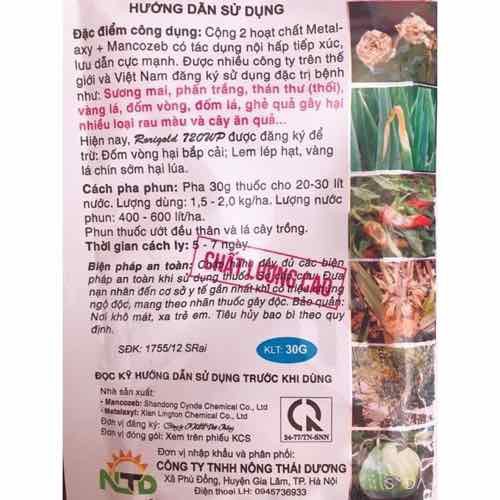 HƯỚNG DẪN SỬ DỤNG
Đặc điểm công dụng: Cộng 2 hoạt chất Metal-
axy + Mancozeb có tác dụng nội hấp tiếp xúc,
lưu dẫn cực mạnh. Được nhiều công ty trên thế
giới và Việt Nam đăng ký sử dụng đặc trị bệnh
như: Sương mai, phấn trắng, thán thư (thối),
vàng lá, đốm vòng, đốm lá, ghẻ quả gây hại
nhiều loại rau màu và cây ăn quả...
Hiện nay, Rorigold 720WP được đăng ký để
trừ: Đốm vòng hại bắp cải; Lem lép hạt, vàng
lá chín sớm hại lúa.
Cách pha phun: Pha 30g thuốc cho 20-30 lít
nước. Lượng dùng: 1,5 - 2,0 kg/ha. Lượng nước
phun: 400 - 600 lít/ha.
Phun thuốc ướt đều thân và lá cây trồng.
Thời gian cách ly: 5 - 7 ngày.
CHẤT LƯỢNG CAO
Biện pháp an toàn: đầy đủ các biện
pháp an toàn khi sử dụng thuốc Đưa
nạn nhân đến cơ sở y tế gần nhất khi có triệu chứng
ngộ độc, mang theo nhãn thuốc gây độc. Bảo quản:
Nơi khô mát, xa trẻ em. Tiêu hủy bao bì theo quy
định.
SĐK: 1755/12 SRai
KLT: 30G
ĐỌC KỸ HƯỚNG DẪN SỬ DỤNG TRƯỚC KHI DÙNG
Nhà sản xuất:
- Mancozeb: Shandong Cynda Chemical Co., Ltd
- Metalaxyl: Xian Lington Chemical Co., Ltd
Đơn vị đăng ký: Công ty
Đơn vị đóng gói: Xem trên phiếu KCS
24-77/TN-SNN
Đơn vị nhập khẩu và phân phối:
CÔNG TY TNHH NÔNG THÁI DƯƠNG
Xã Phù Đổng, Huyện Gia Lâm, TP. Hà Nội
Điện thoại LH: 0945736933
NTD